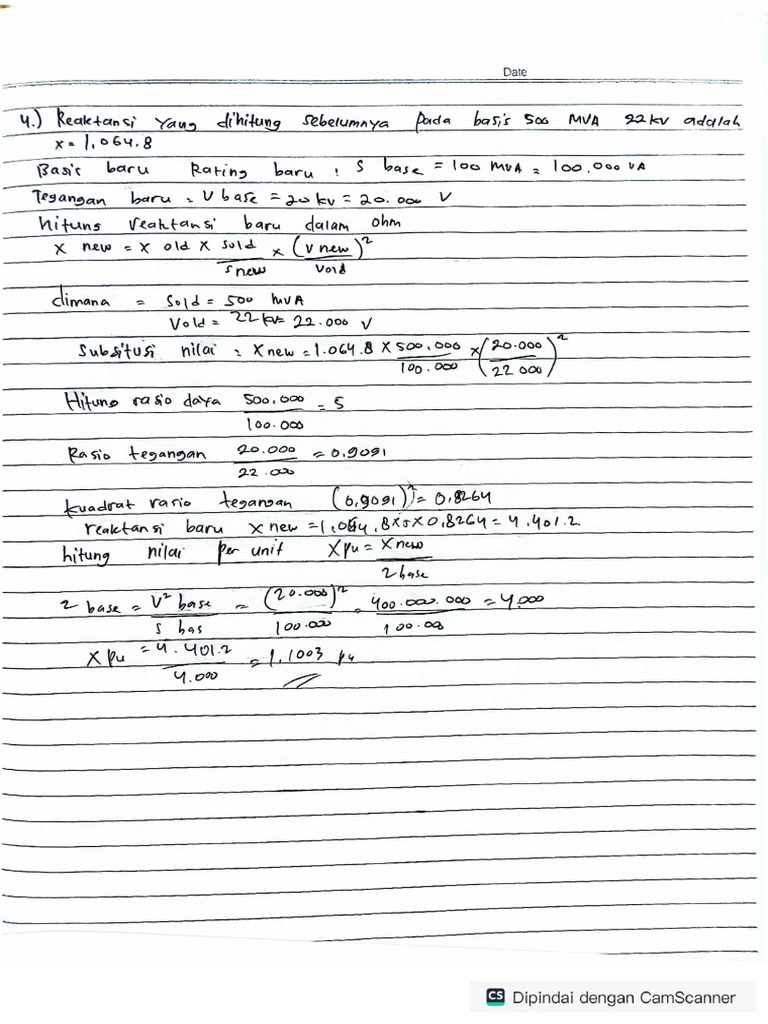 Date
4.) Reaktansi yang dihitung sebelumnya pada basis 500 MVA 22kv adalah
x = 1,064.8
Basis baru Rating baru : S base = 100 MVA = 100.000 VA
Tegangan baru = V base = 20 kv = 20.000 V
hitung reaktansi baru dalam ohm
x new = x old x sold / s new x (v new / vold)²
dimana = Sold = 500 MVA
Vold = 22 kv = 22.000 V
Subsitusi nilai = x new = 1.064.8 x 500.000 / 100.000 x (20.000 / 22 000)²
Hitung rasio daya 500.000 / 100.000 = 5
Rasio tegangan 20.000 / 22.000 = 0,9091
kuadrat rasio tegangan (0,9091)² = 0,8264
reaktansi baru x new = 1,064,8 x 5 x 0,8264 = 4.401.2
hitung nilai per unit Xpu = X new / 2 base
2 base = V² base / s bas = (20.000)² / 100.000 = 400.000.000 / 100.00 = 4.000
X pu = 4.401.2 / 4.000 = 1,1003 pu
CS Dipindai dengan CamScanner